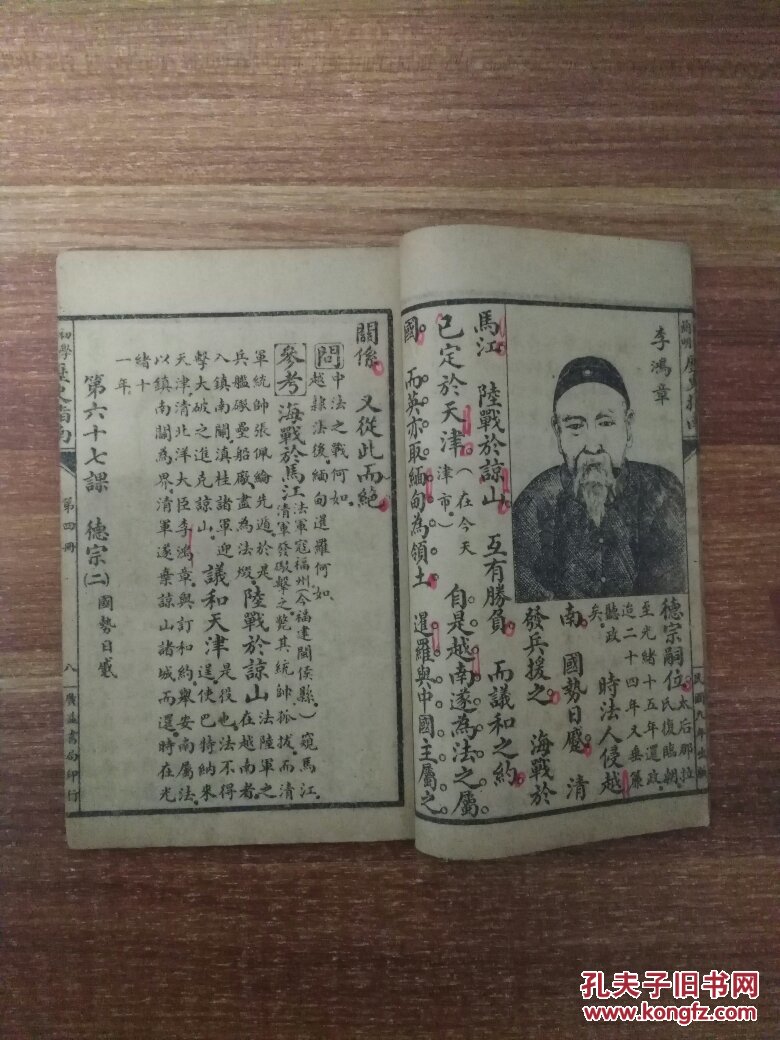 李鴻章
德宗嗣位。太后那拉
氏復臨朝。
至光緒十五年還政。
迨二十四年又垂簾
聽政
矣。
時法人侵越
南。國勢日蹙。清
發兵援之。海戰於
馬江。陸戰於諒山。互有勝負。而議和之約。
已定於天津。(在今天
津市)
自是越南遂為法之屬
國。而英亦取緬甸為領土。暹羅與中國主屬之
民國九年出版
關係。又從此而絕。
問
中法之戰何如。
越隸法後。緬甸暹羅何如。
參考
海戰於馬江
法軍寇福州(今福建閩侯縣。)窺馬江。
清軍發礮擊之。斃其統帥孤拔。而清
軍統帥張佩綸先遁。於是
兵艦礮壘船廠盡為法燬。
陸戰於諒山
法陸軍之
在越南者。
入鎮南關。滇桂諸軍迎
擊大破之。進克諒山。
議和天津
是役也。法不得
逞。使巴特納來
天津。清北洋大臣李鴻章。與訂和約。舉安南屬法。
以鎮南關為界。清軍遂棄諒山諸城而還。時在光
緒十
一年。
第六十七課 德宗(二)國勢日蹙
初學歷史指南
第四冊
八
廣益書局印行
孔夫子旧书网
www.kongfz.com